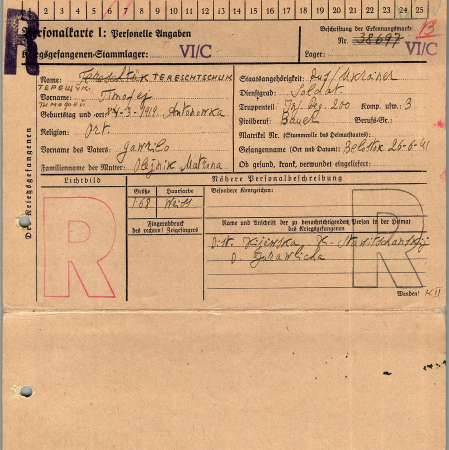 1 2 3 4 5 6 7 8 9 10 11 12 13 14 15 16 17 18 19 20 21 22 23 24 25
R
Personalkarte I: Personelle Angaben
Kriegsgefangenen-Stammlager: VI/C
Beschriftung der Erkennungsmarke
Nr. 38697
13
Lager: VI/C
Des Kriegsgefangenen
Name: TERESCHTSCHUK
ТЕРЕЩУК
Vorname: Timofej
ТИМОФЕЙ
Geburtstag und -ort: 1919 Antonowka
Religion: Ort.
Vorname des Vaters: Gawrilo
Familienname der Mutter: Olejnik Matrona
Staatsangehörigkeit: Ukrainer
Dienstgrad: Soldat
Truppenteil: Inf. Reg. 200 Komp. usw.: 3
Zivilberuf: Bauer Berufs-Gr.:
Matrikel Nr. (Stammrolle des Heimatstaates):
Gefangennahme (Ort und Datum): 26-6-41
Ob gesund, krank, verwundet eingeliefert:
Lichtbild
Nähere Personalbeschreibung
Größe
Haarfarbe
Besondere Kennzeichen:
168
Fingerabdruck
des rechten! Zeigefingers
Name und Anschrift der zu benachrichtigenden Person in der Heimat
des Kriegsgefangenen
R
R
Wenden!